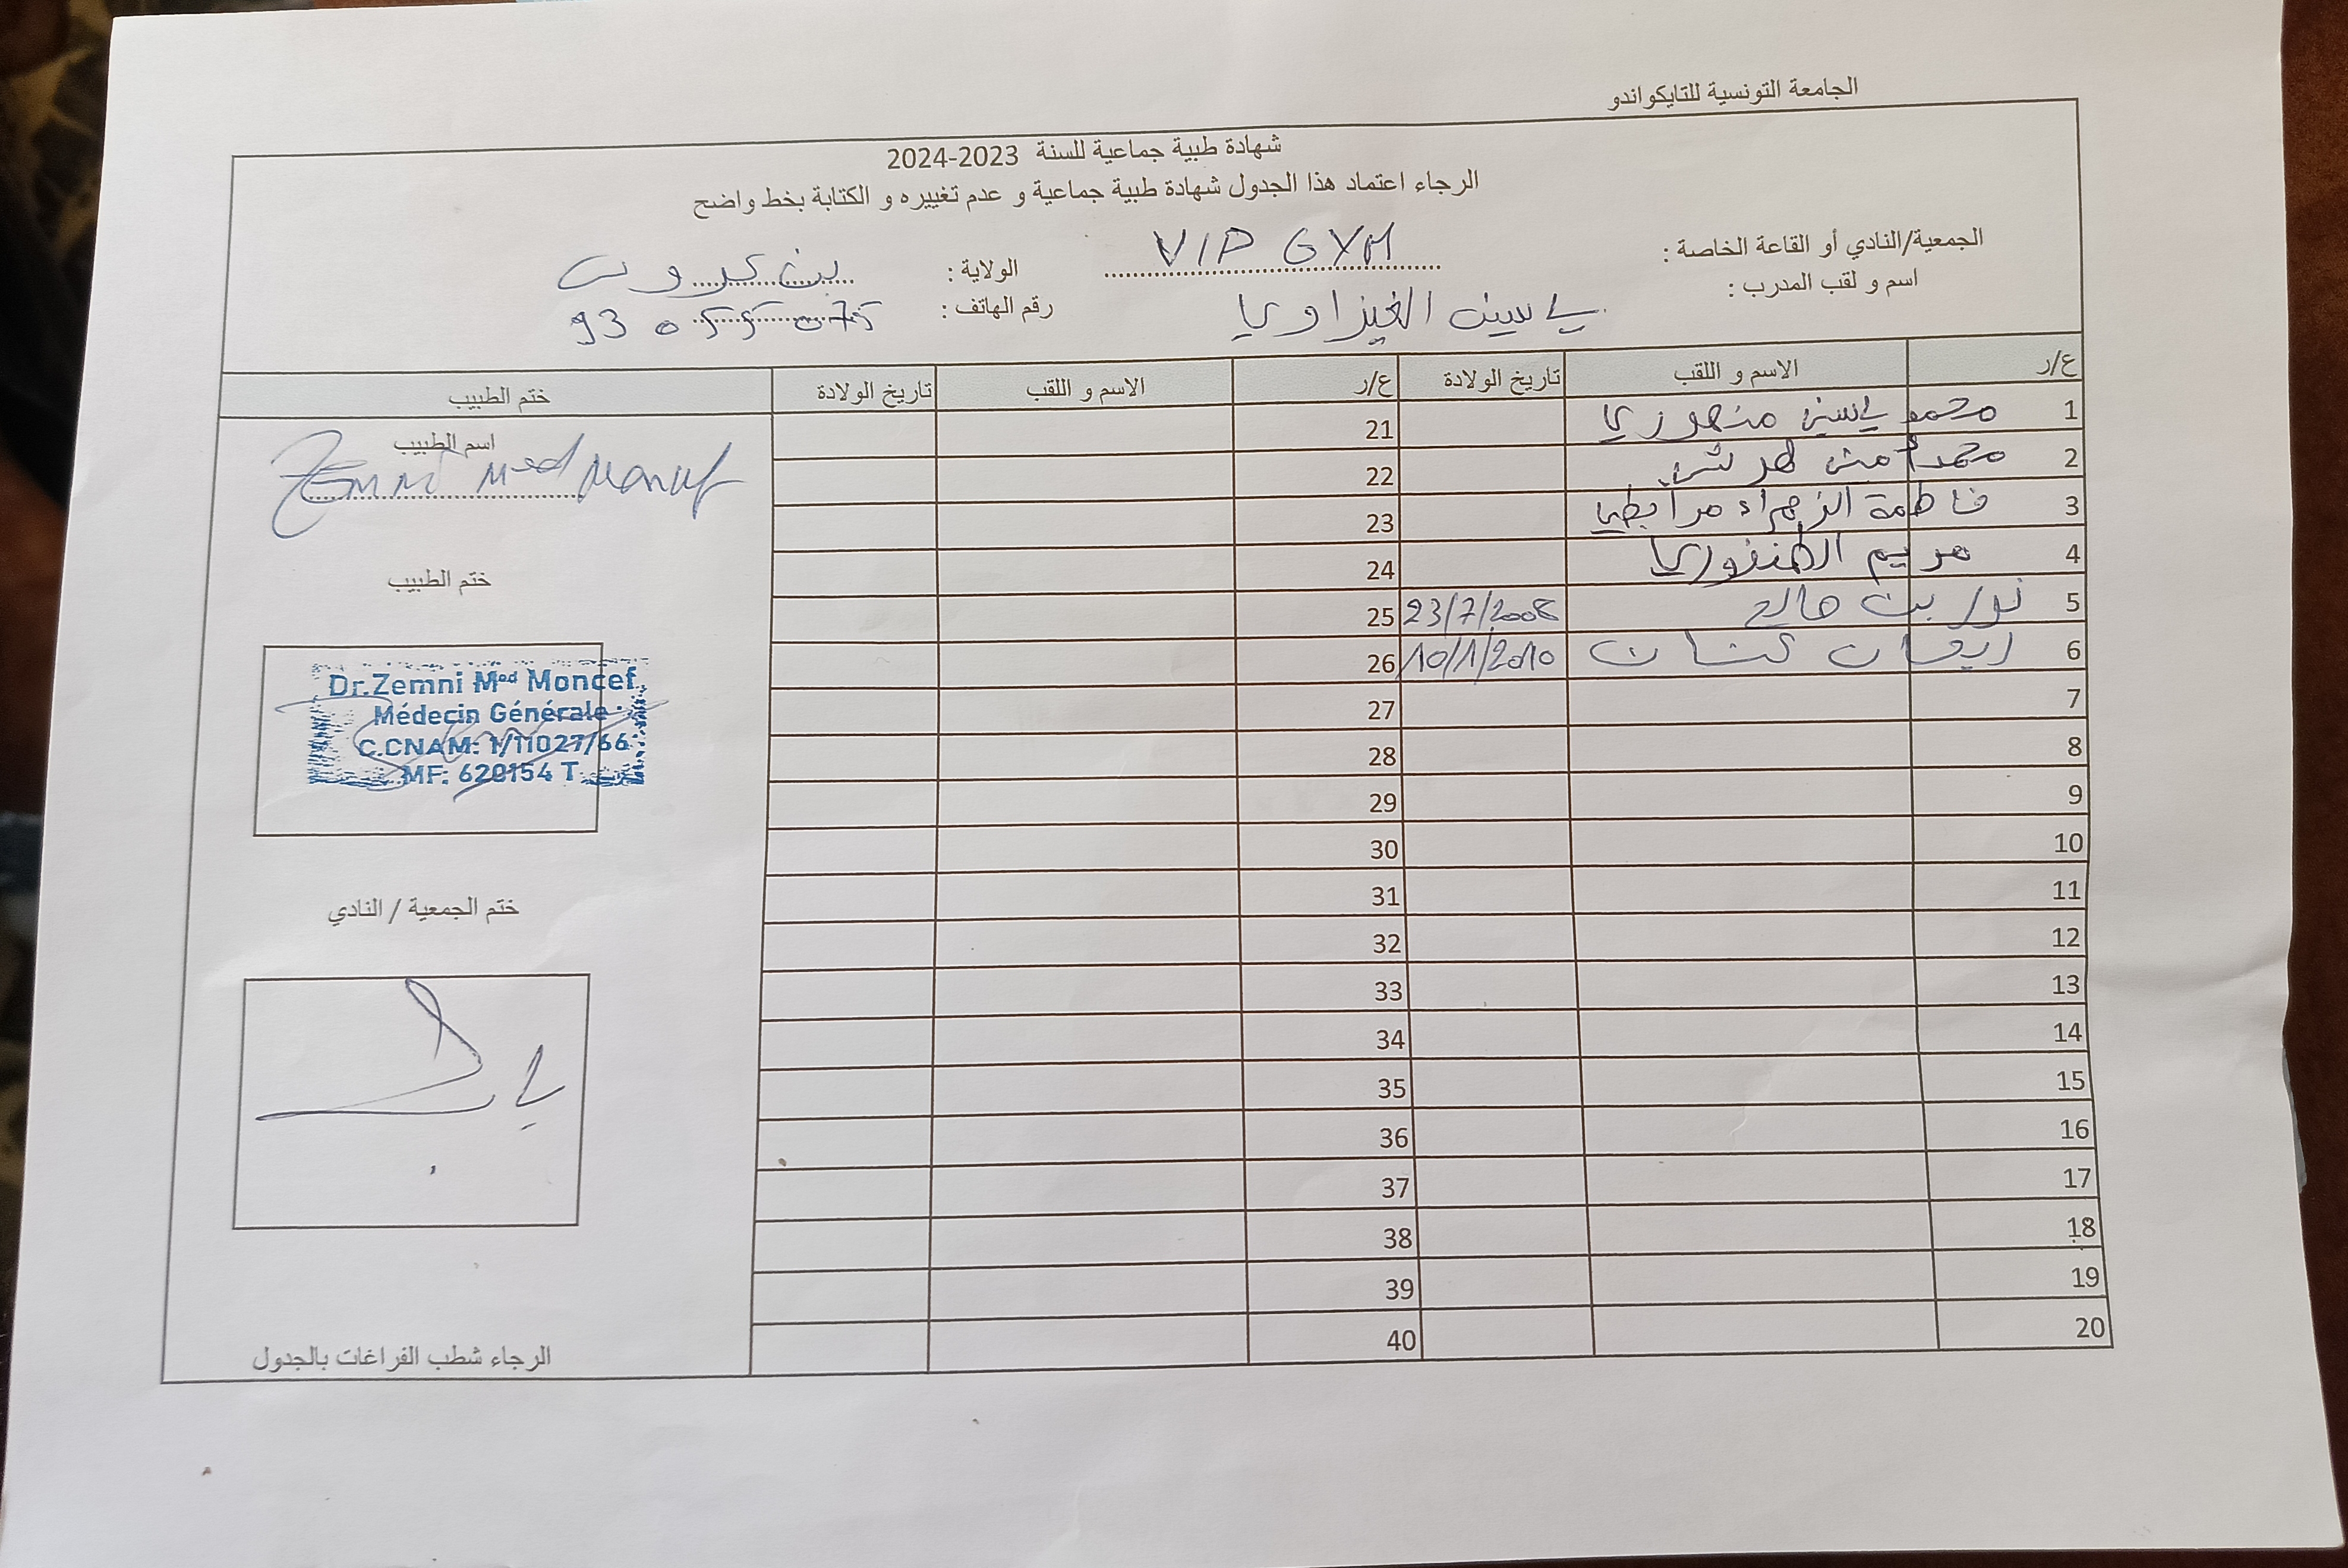 الجامعة التونسية للتايكواندو
شهادة طبية جماعية للسنة 2023-2024
الرجاء اعتماد هذا الجدول شهادة طبية جماعية و عدم تغييره و الكتابة بخط واضح
الجمعية/النادي أو القاعة الخاصة : VIP GYM الولاية : بن عروس
اسم و لقب المدرب : ياسين الغيزاوي رقم الهاتف : 93 055 075
ع/ر الاسم و اللقب تاريخ الولادة ع/ر الاسم و اللقب تاريخ الولادة ختم الطبيب
1 محمد ياسين منصوري 21
2 محمد أمين 22
3 فاطمة الزهراء مرابطي 23
4 مريم الطنفوري 24
5 نور بن صالح 23/7/2008 25
6 ريهان 10/1/2010 26
7 27
8 28
9 29
10 30
11 31
12 32
13 33
14 34
15 35
16 36
17 37
18 38
19 39
20 40
اسم الطبيب
Zemni Med Moncef
ختم الطبيب
Dr.Zemni Med Moncef
Médecin Générale
C.CNAM: 1/11027/66
MF: 620154 T
ختم الجمعية / النادي
الرجاء شطب الفراغات بالجدول